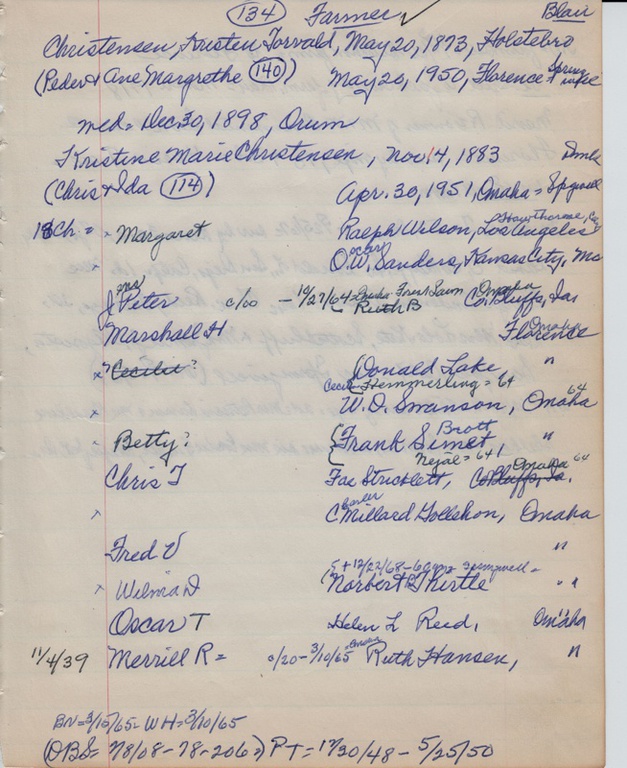 134 Farmer ✓ Blair
Christensen, Kristen Torvald, May 20, 1873, Holstebro
(Peder & Ane Margrethe 140) May 20, 1950, Florence = Spring
med = Dec. 30, 1898, Orum
Kristine Marie Christensen, Nov. 14, 1883
(Chris & Ida 174) Apr. 30, 1951, Omaha = Spgwell
13 Ch = × Margaret Ralph Wilson, Los Angeles
Hawthorne,
× Oscar
O.W. Sanders, Kansas City, Mo
J. Peter c/00 - 12/27/64 Ruth B Co. Bluffs, Ia
Omaha
Marshall H Florence
Omaha
×? Cecilie? Donald Lake, "
Hemmerling = 64
× W.D. Swanson, Omaha
64
× Betty? Frank Simet "
Brott
Chris T Fae Stricklett, Co Bluffs, Ia.
Omaha 64
× C Millard Gollehon, Omaha
Charles
Fred V "
12/22/68
× Wilma D Norbert Thirtle "
Oscar T Helen L Reed, Omaha
11/4/39 Merrill R = c/20 - 3/10/65 Ruth Hansen, "
BN = 3/15/65 - WH = 3/10/65
(OBS = 78/08 - 78 - 206) PT = 12/30/48 - 5/25/50